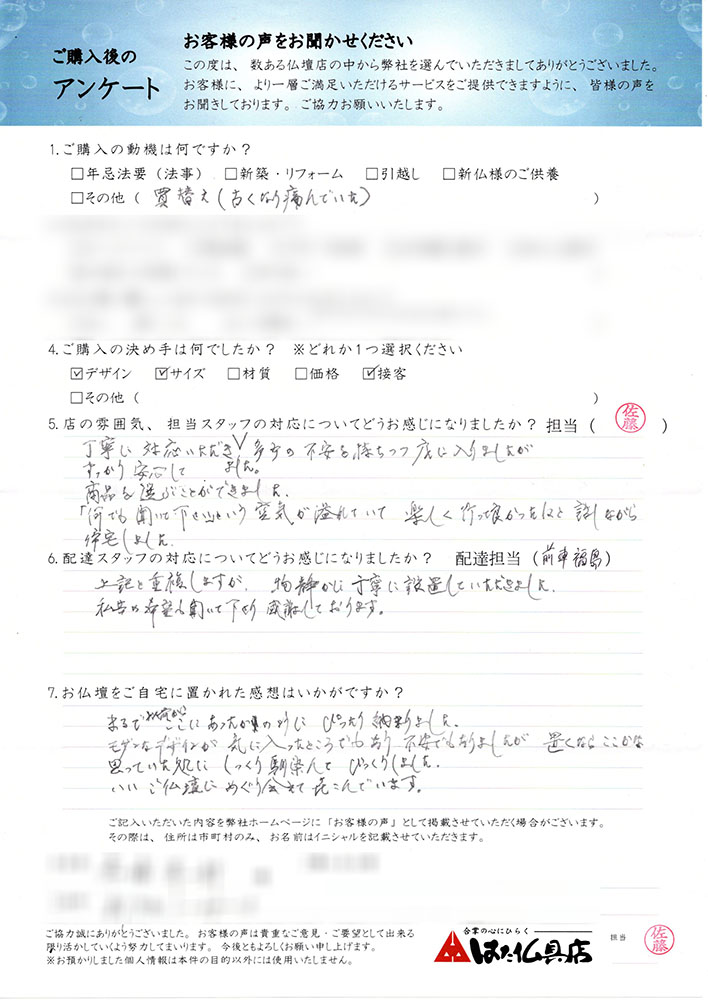 ご購入後の
アンケート
お客様の声をお聞かせください
この度は、数ある仏壇店の中から弊社を選んでいただきましてありがとうございました。
お客様に、より一層ご満足いただけるサービスをご提供できますように、皆様の声を
お聞きしております。ご協力お願いいたします。
1.ご購入の動機は何ですか？
□年忌法要（法事） □新築・リフォーム □引越し □新仏様のご供養
□その他（ 買替え（古くなり痛んでいた） ）
4.ご購入の決め手は何でしたか？ ※どれか1つ選択ください
☑デザイン ☑サイズ □材質 □価格 ☑接客
□その他（ ）
5.店の雰囲気、担当スタッフの対応についてどうお感じになりましたか？担当（ 佐藤 ）
丁寧に対応いただきました。多少の不安を持ちつつ店に入りましたが
すっかり安心して
商品を選ぶことができました。
「何でも聞いて下さいという空気が溢れていて 楽しく行って良かったねと話しながら
帰宅しました。
6.配達スタッフの対応についてどうお感じになりましたか？ 配達担当（前車 福島）
上記と重複しますが、物静かに丁寧に設置していただきました。
私共の希望も聞いて下さり感謝しております。
7.お仏壇をご自宅に置かれた感想はいかがですか？
まるで ここにあったかのように ぴったり納まりました。
モダンなデザインが気に入ったところでもあり 不安でもありましたが 置くならここかな
思っていた処に しっくり馴染んで びっくりしました。
いいご仏壇にめぐり会えて喜こんでいます。
ご記入いただいた内容を弊社ホームページに「お客様の声」として掲載させていただく場合がございます。
その際は、住所は市町村のみ、お名前はイニシャルを記載させていただきます。
ご協力誠にありがとうございました。お客様の声は貴重なご意見・ご要望として出来る
限り活かしていくよう努力してまいります。今後ともよろしくお願い申し上げます。
※お預かりしました個人情報は本件の目的以外には使用いたしません。
合掌の心にひらく
はた仏具店
担当 佐藤